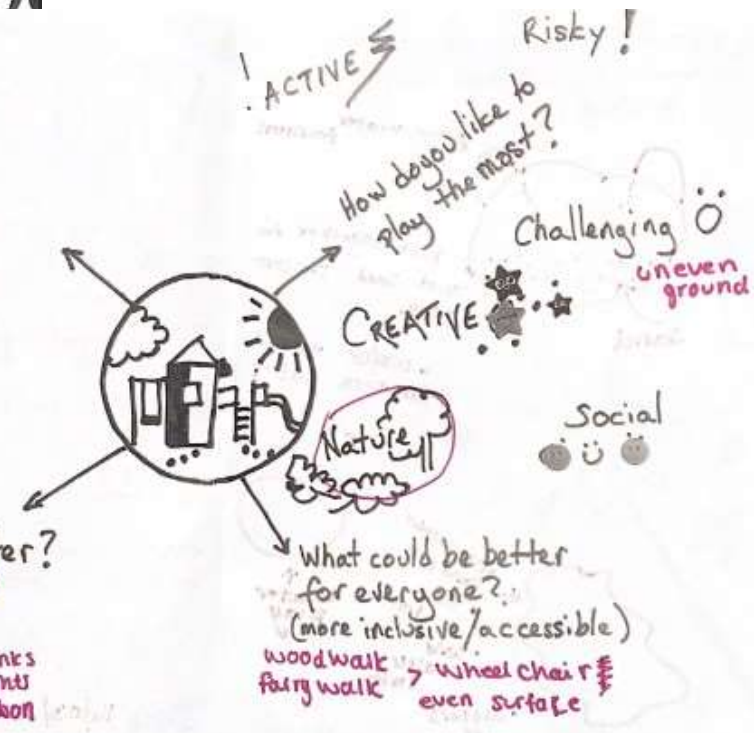 ! ACTIVE
Risky!
How do you like to
play the most?
Challenging
uneven
ground
CREATIVE
Nature
Social
er?
What could be better
for everyone?
(more inclusive/accessible)
woodwalk
fairy walk > wheelchair
even surface
nks
nts